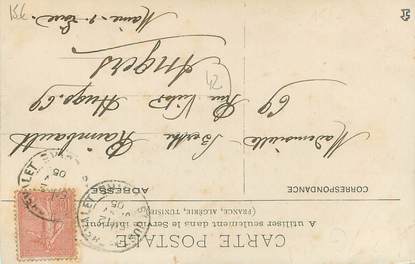 CARTE POSTALE
A utiliser seulement dans le service intérieur
(FRANCE, ALGÉRIE, TUNISIE)
CORRESPONDANCE
ADRESSE
Mademoiselle Berthe Raimbault
69 Rue Victor Hugo. 69
Angers
Maine-&-Loire
42